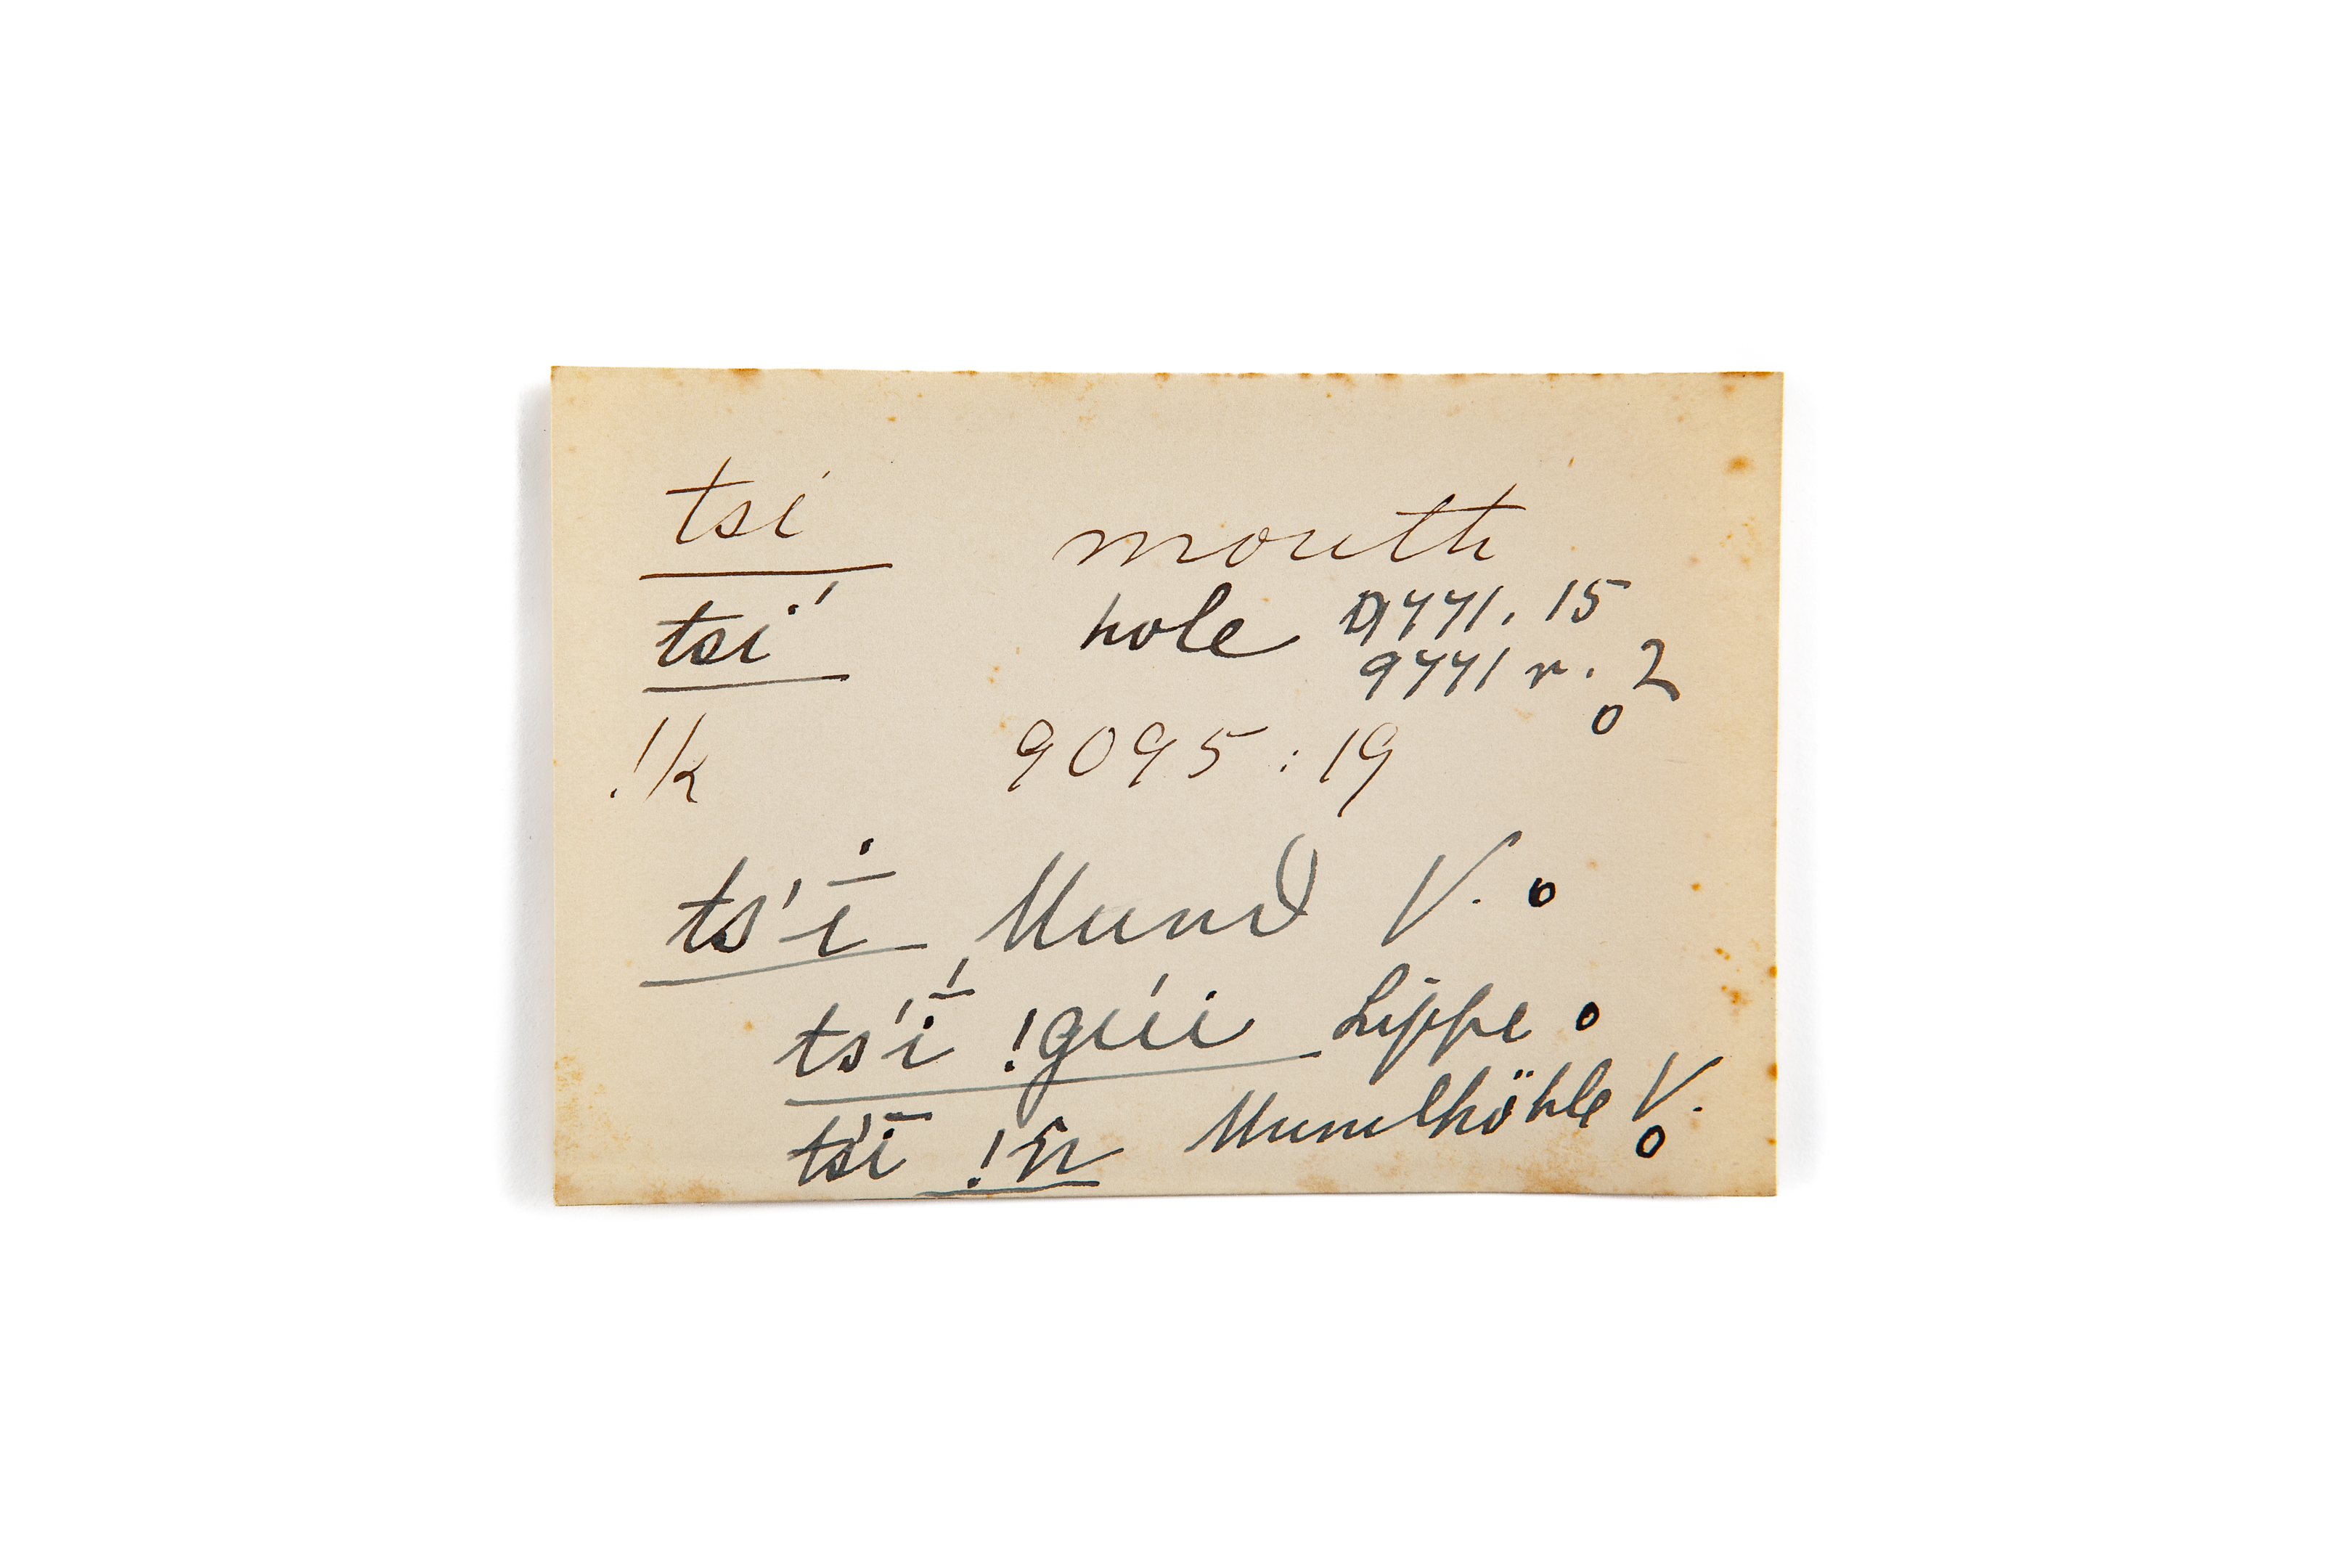 tsi mouth
tsí hole 9771. 15
9771 r. 2
o
!k 9095 : 19
ts'ī Mund V. o
ts'ī́ !gúi Lippe o
ts'ī !n̄ Mundhöhle V.
o